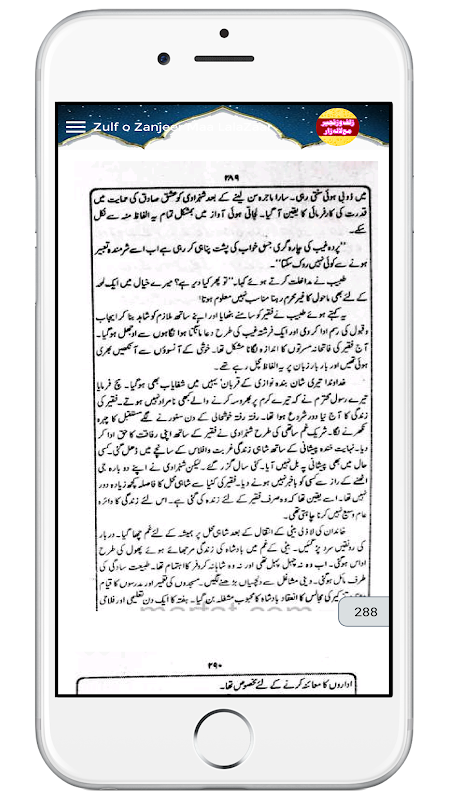 Zulf o Zanjeer
زلف وزنجیر
مولانہ زار
۲۸۹
میں ڈوبی ہوئی سنتی رہی۔ سارا ماجرہ سن لینے کے بعد شہزادی کو عشق صادق کی حمایت میں
قدرت کی کارفرمائی کا یقین آ گیا۔ لجاتی ہوئی آواز میں بمشکل تمام یہ الفاظ منہ سے نکل
سکے۔
"پردہ غیب کی چارہ گری جس خواب کی پشت پناہی کر رہی ہے اب اسے شرمندہ تعبیر
ہونے سے کوئی نہیں روک سکتا"۔
طبیب نے مداخلت کرتے ہوئے کہا۔ "تو پھر کیا دیر ہے؟ میرے خیال میں ایک لمحہ
کے لئے بھی ماحول کا غیر محرم رہنا مناسب نہیں معلوم ہوتا!
یہ کہتے ہوئے طبیب نے فقیر کو سامنے بٹھایا اور اپنے ساتھ ملازم کو شاہد بنا کر ایجاب
و قبول کی رسم ادا کر دی اور ایک فرشتہ غیب کی طرح دعا مانگتا ہوا نگاہوں سے اوجھل ہو گیا۔
آج فقیر کی فاتحانہ مسرتوں کا اندازہ لگانا مشکل تھا۔ خوشی کے آنسوؤں سے آنکھیں بھری
ہوئی تھیں اور بار بار زبان پر یہ الفاظ مچل رہے تھے۔
خداوندا تیری شان بندہ نوازی کے قربان! یہیں میں شفایاب بھی ہو گیا۔ سچ فرمایا
تیرے رسول محترم نے کہ تیرے کرم پر بھروسہ کرنے والے کبھی نامراد نہیں ہوتے۔ فقیر کی
زندگی کا آج نیا دور شروع ہوا تھا۔ رفتہ رفتہ خوشحالی کے دن سنورنے لگے مستقبل کا چہرہ
نکھرنے لگا۔ شریک غم ساتھی کی طرح شہزادی نے فقیر کے ساتھ اپنی رفاقت کا حق ادا کر
دیا۔ نہایت خندہ پیشانی کے ساتھ شاہی زندگی غربت و افلاس کے سانچے میں ڈھل گئی کسی
حال میں بھی پیشانی پہ بل نہیں آیا۔ کئی سال گزر گئے۔ لیکن شہزادی نے اپنے دوبارہ جی
اٹھنے کے راز سے کسی کو باخبر نہیں ہونے دیا۔ فقیر کی کٹیا سے شاہی محل کا فاصلہ کچھ زیادہ دور
نہیں تھا۔ اسے یقین تھا کہ وہ صرف فقیر کے لئے زندہ کی گئی ہے۔ اس لئے زندگی کا دائرہ
عام وسیع نہیں کرنا چاہتی تھی۔
خاندان کی لاڈلی بیٹی کے انتقال کے بعد شاہی محل پر ہمیشہ کے لئے غم چھا گیا۔ دربار
کی رونقیں سرد پڑ گئیں۔ بیٹی کے غم میں بادشاہ کی زندگی مرجھائے ہوئے پھول کی طرح
اداس ہو گئی۔ اب وہ نہ پہل پہل تھی اور نہ شاہانہ کروفر کا اہتمام تھا۔ طبیعت سادگی کی
طرف مائل ہو گئی۔ دینی مشاغل سے دلچسپیاں بڑھنے لگیں۔ مسجدوں کی تعمیر اور مدرسوں کا قیام
کی مجالس کا انعقاد بادشاہ کا محبوب مشغلہ بن گیا۔ ہفتہ کا ایک دن تعلیمی اور فلاحی
288
۲۹۰
اداروں کا معائنہ کرنے کے لئے مخصوص تھا۔